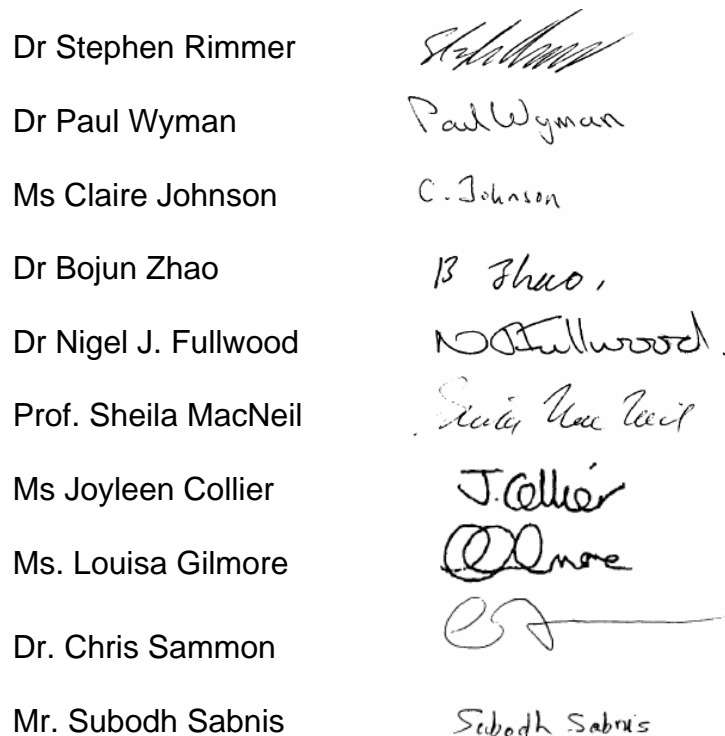 Dr Stephen Rimmer
Dr Paul Wyman Paul Wyman
Ms Claire Johnson C. Johnson
Dr Bojun Zhao B Zhao,
Dr Nigel J. Fullwood NJFullwood.
Prof. Sheila MacNeil Sheila Mac Neil
Ms Joyleen Collier J. Collier
Ms. Louisa Gilmore
Dr. Chris Sammon
Mr. Subodh Sabnis Subodh Sabnis